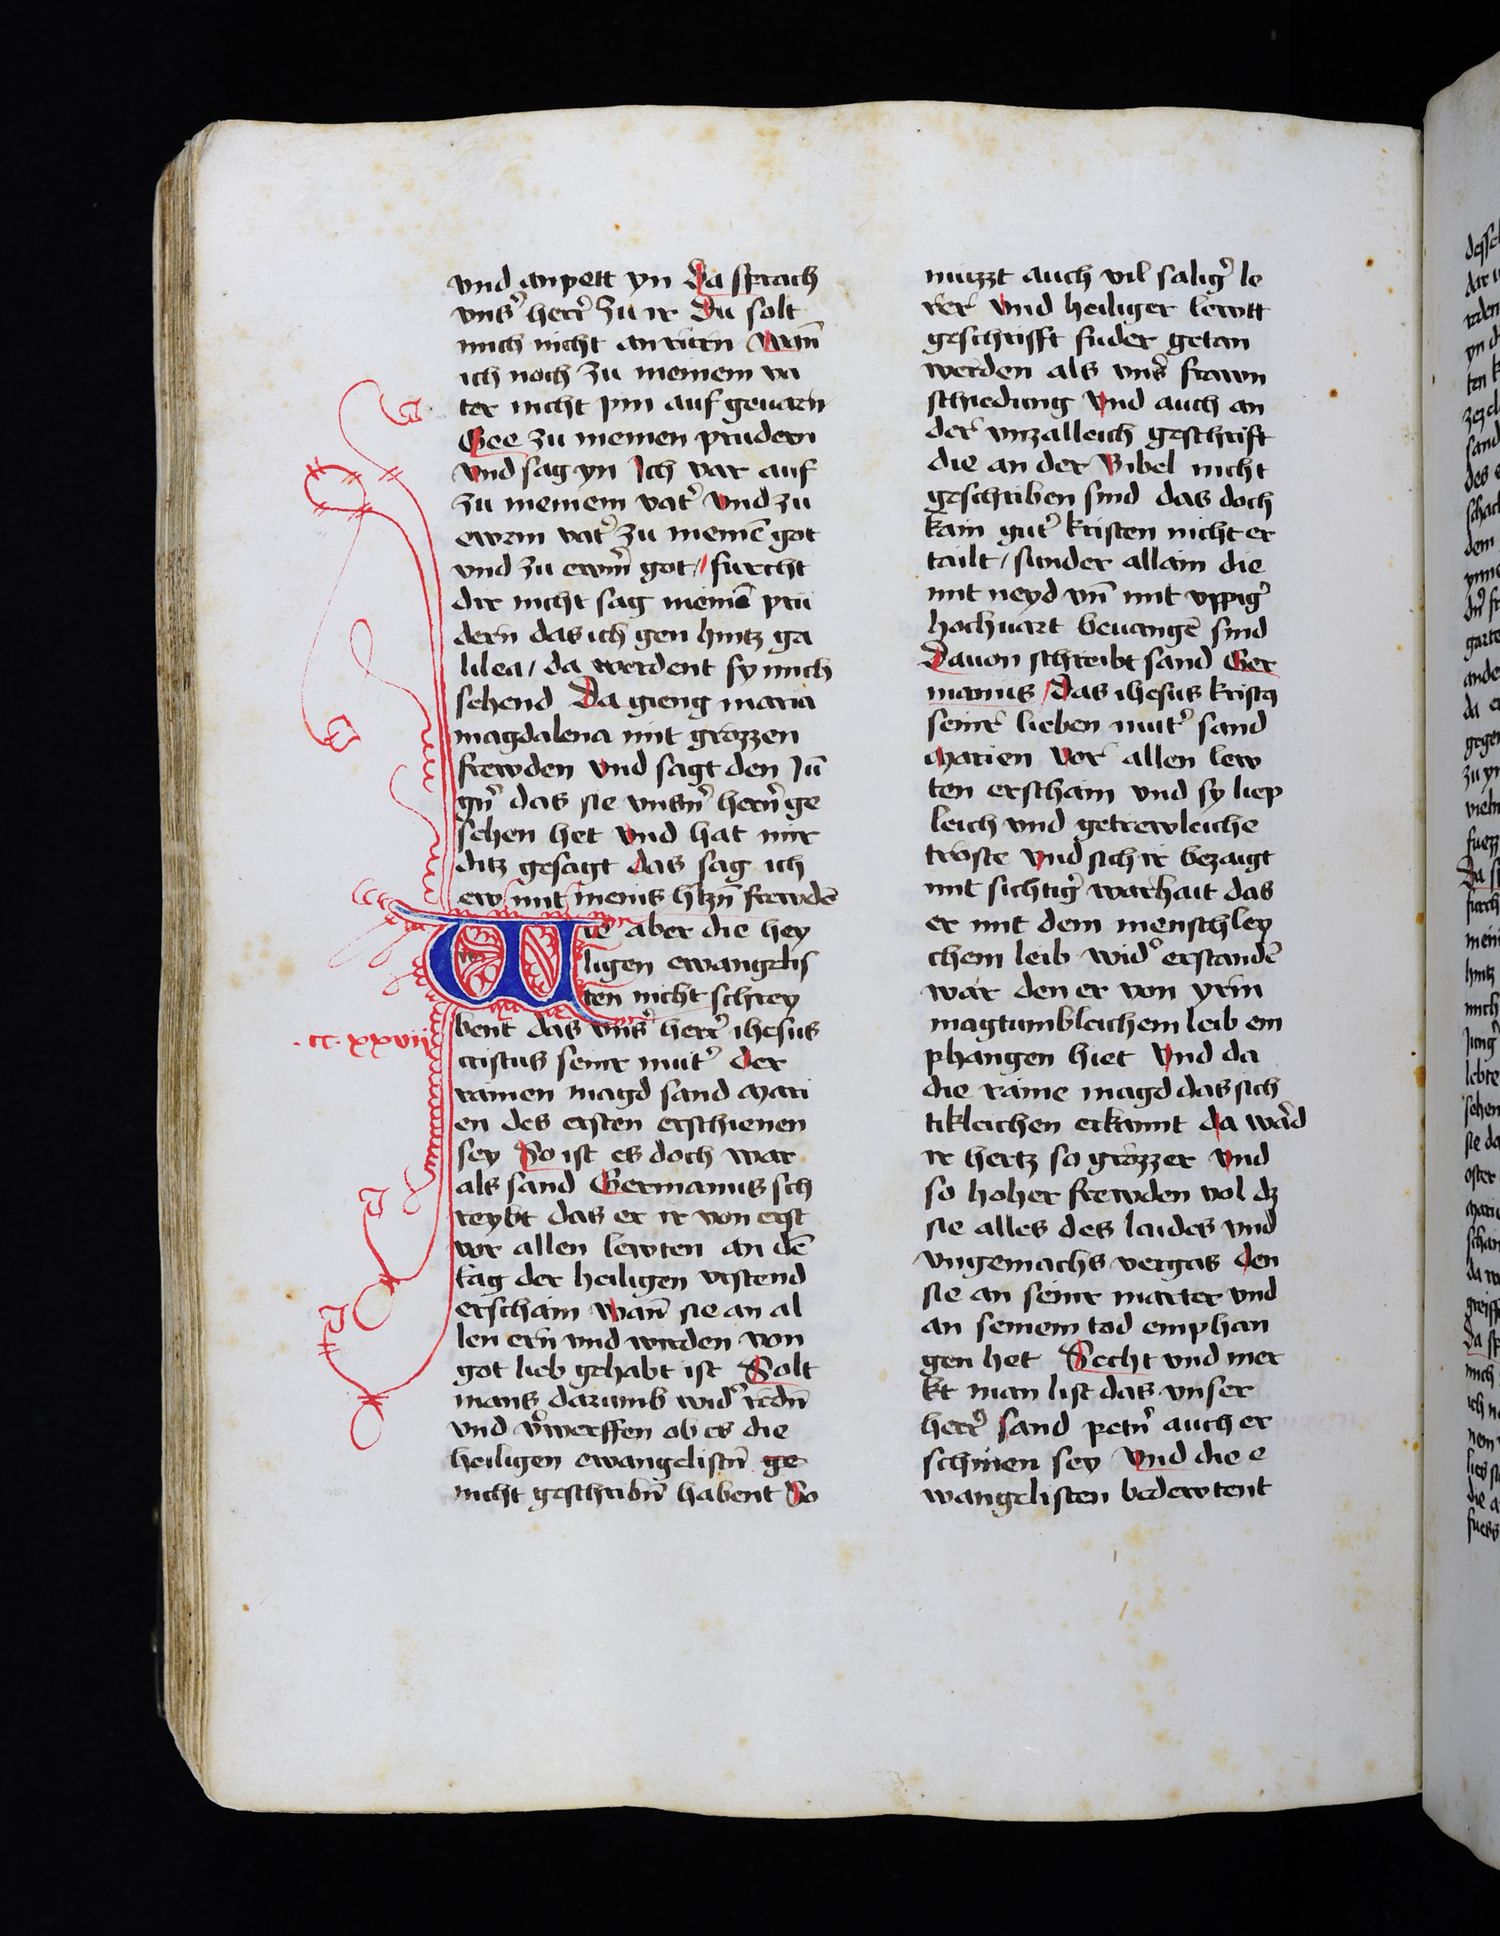 und anpett yn Da sprach
unsˀ herˀ zu ir Du solt
mich nicht anrürn Wan̄
ich noch zu meinem va
ter nicht pin auf geuarn
Gee zu meinen prudern
und sag yn Ich var auf
zu meinem vatˀ Und zu
ewrm vatˀ zu meinē got
und zu ewrm̄ got / furcht
dir nicht sag meinē prü
dern das ich gen hintz ga
lilea / da werdent sy mich
sehend Da gieng maria
magdalena mit grözzen
frewden und sagt den Jū
gn̄ˀ das sie unsn̄ˀ hern̄ˀ ge
sehen het Und hat mir
ditz gesagt das sag ich
ew mit meins htzn̄ frewdē
Wie aber die hey
ligen ewangelis
ten nicht schrey
bent das unsˀ herˀ ihesus
.cc.xxvii
cristus seinr mutˀ der
rainen magd sand mari
en des ersten erschienen
sey So ist es doch war
als sand Germanus sch
reybt das er ir von erst
vor allen lewten an dē
tag der heiligen urstend
erschain wan̄ sie an al
len ern̄ und wirden von
got lieb gehabt ist Solt
mans darumb widˀ redn̄
und vˀwerffen ob es die
heiligen ewangelistn̄ ge
nicht geschribn̄ habent So
müzzt auch vil saligˀ le
rerˀ Und heiliger lewtt
geschrifft fuder getan
werden als unsˀ frawn
schiedung Und auch an
derˀ unzalleich geschrift
die an der Bibel nicht
geschriben sind das doch
kain gutˀ kristen nicht er
tailt / sunder allain die
mit neyd un̄ mit uppigˀ
hochuart beuangē sind
Dauon schreibt sand Ger
manus / Das ihesus kristꝯ
seinrˀ lieben mutˀ sand
Marien vorˀ allen lew
ten erschain und sy liep
leich und getrewleiche
tröste Und sich ir bezaigt
mit sichtigˀ warhait das
er mit dem menschley
chem leib widˀ erstandē
wär den er von yrm
magtumbleichem leib em
phangen hiet Und da
die raine magd das sich
tikleichen erkannt da ward
ir hertz so grözzer Und
so hoher frewden vol dz
sie alles des laides und
ungemachs vergas den
sie an seinr marter und
an seinem tod emphan
gen het Secht und mer
kt man list das unser
herˀ sand petn̄ˀ auch er
schinen sey Und die e
wangelisten bedewtent